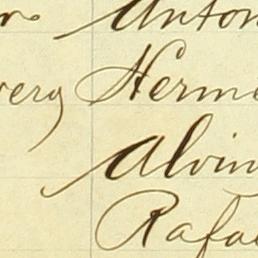 Anton
very Herme
Alvin
Rafa